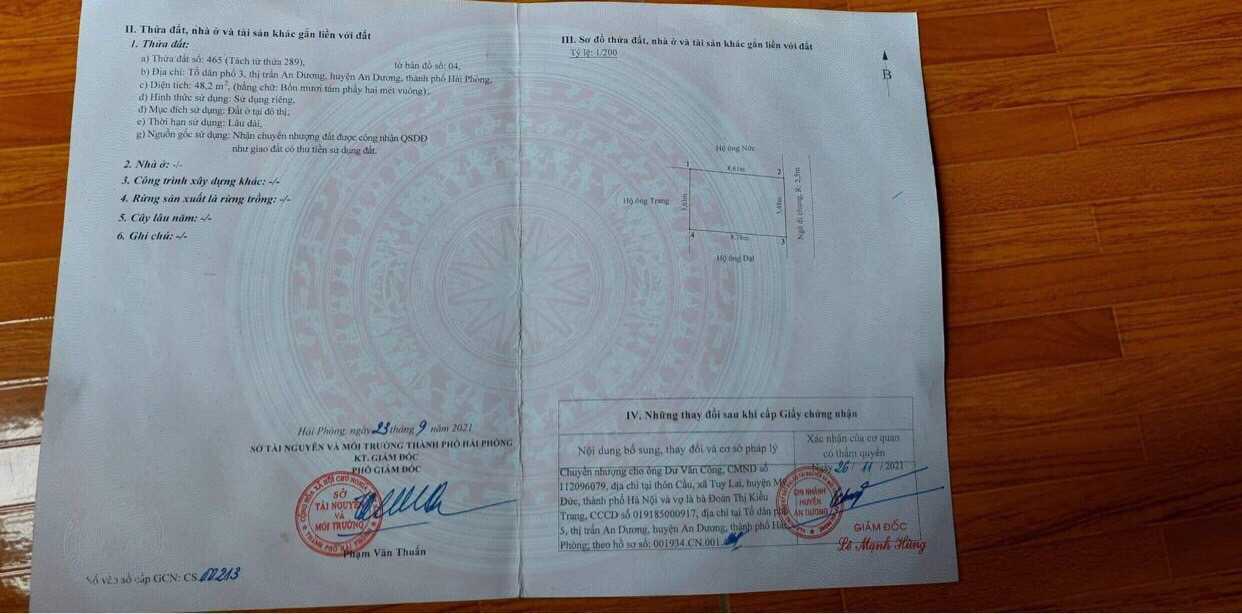 II. Thửa đất, nhà ở và tài sản khác gắn liền với đất
1. Thửa đất:
a) Thửa đất số: 465 (Tách từ thửa 289), tờ bản đồ số: 04,
b) Địa chỉ: Tổ dân phố 3, thị trấn An Dương, huyện An Dương, thành phố Hải Phòng,
c) Diện tích: 48,2 m², (bằng chữ: Bốn mươi tám phẩy hai mét vuông),
d) Hình thức sử dụng: Sử dụng riêng,
đ) Mục đích sử dụng: Đất ở tại đô thị,
e) Thời hạn sử dụng: Lâu dài,
g) Nguồn gốc sử dụng: Nhận chuyển nhượng đất được công nhận QSDĐ
như giao đất có thu tiền sử dụng đất.
2. Nhà ở: -/-
3. Công trình xây dựng khác: -/-
4. Rừng sản xuất là rừng trồng: -/-
5. Cây lâu năm: -/-
6. Ghi chú: -/-
Hải Phòng, ngày 23 tháng 9 năm 2021
SỞ TÀI NGUYÊN VÀ MÔI TRƯỜNG THÀNH PHỐ HẢI PHÒNG
KT. GIÁM ĐỐC
PHÓ GIÁM ĐỐC
SỞ
TÀI NGUYÊN
VÀ
MÔI TRƯỜNG
Phạm Văn Thuấn
Số vào sổ cấp GCN: CS.00213
III. Sơ đồ thửa đất, nhà ở và tài sản khác gắn liền với đất
Tỷ lệ: 1/200
B
Hộ ông Nức
1
8,61m
2
Hộ ông Trang
Ngõ đi chung, R: 2,5m
4
8,78m
3
Hộ ông Đạt
IV. Những thay đổi sau khi cấp Giấy chứng nhận
Nội dung bổ sung, thay đổi và cơ sở pháp lý
Xác nhận của cơ quan
có thẩm quyền
Chuyển nhượng cho ông Dư Văn Công, CMND số
112096079, địa chỉ tại thôn Cầu, xã Tuy Lai, huyện Mỹ
Đức, thành phố Hà Nội và vợ là bà Đoàn Thị Kiều
Trang, CCCD số 019185000917, địa chỉ tại Tổ dân phố
5, thị trấn An Dương, huyện An Dương, thành phố Hải
Phòng; theo hồ sơ số: 001934.CN.001
Ngày 26/11/2021
CHI NHÁNH
HUYỆN
AN DƯƠNG
GIÁM ĐỐC
Lê Mạnh Hùng